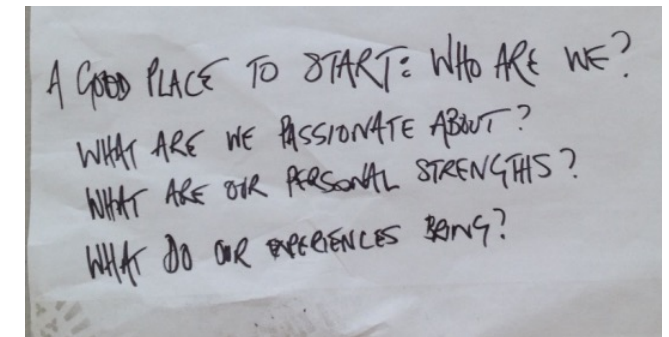 A GOOD PLACE TO START: WHO ARE WE?
WHAT ARE WE PASSIONATE ABOUT?
WHAT ARE OUR PERSONAL STRENGTHS?
WHAT DO OUR EXPERIENCES BRING?